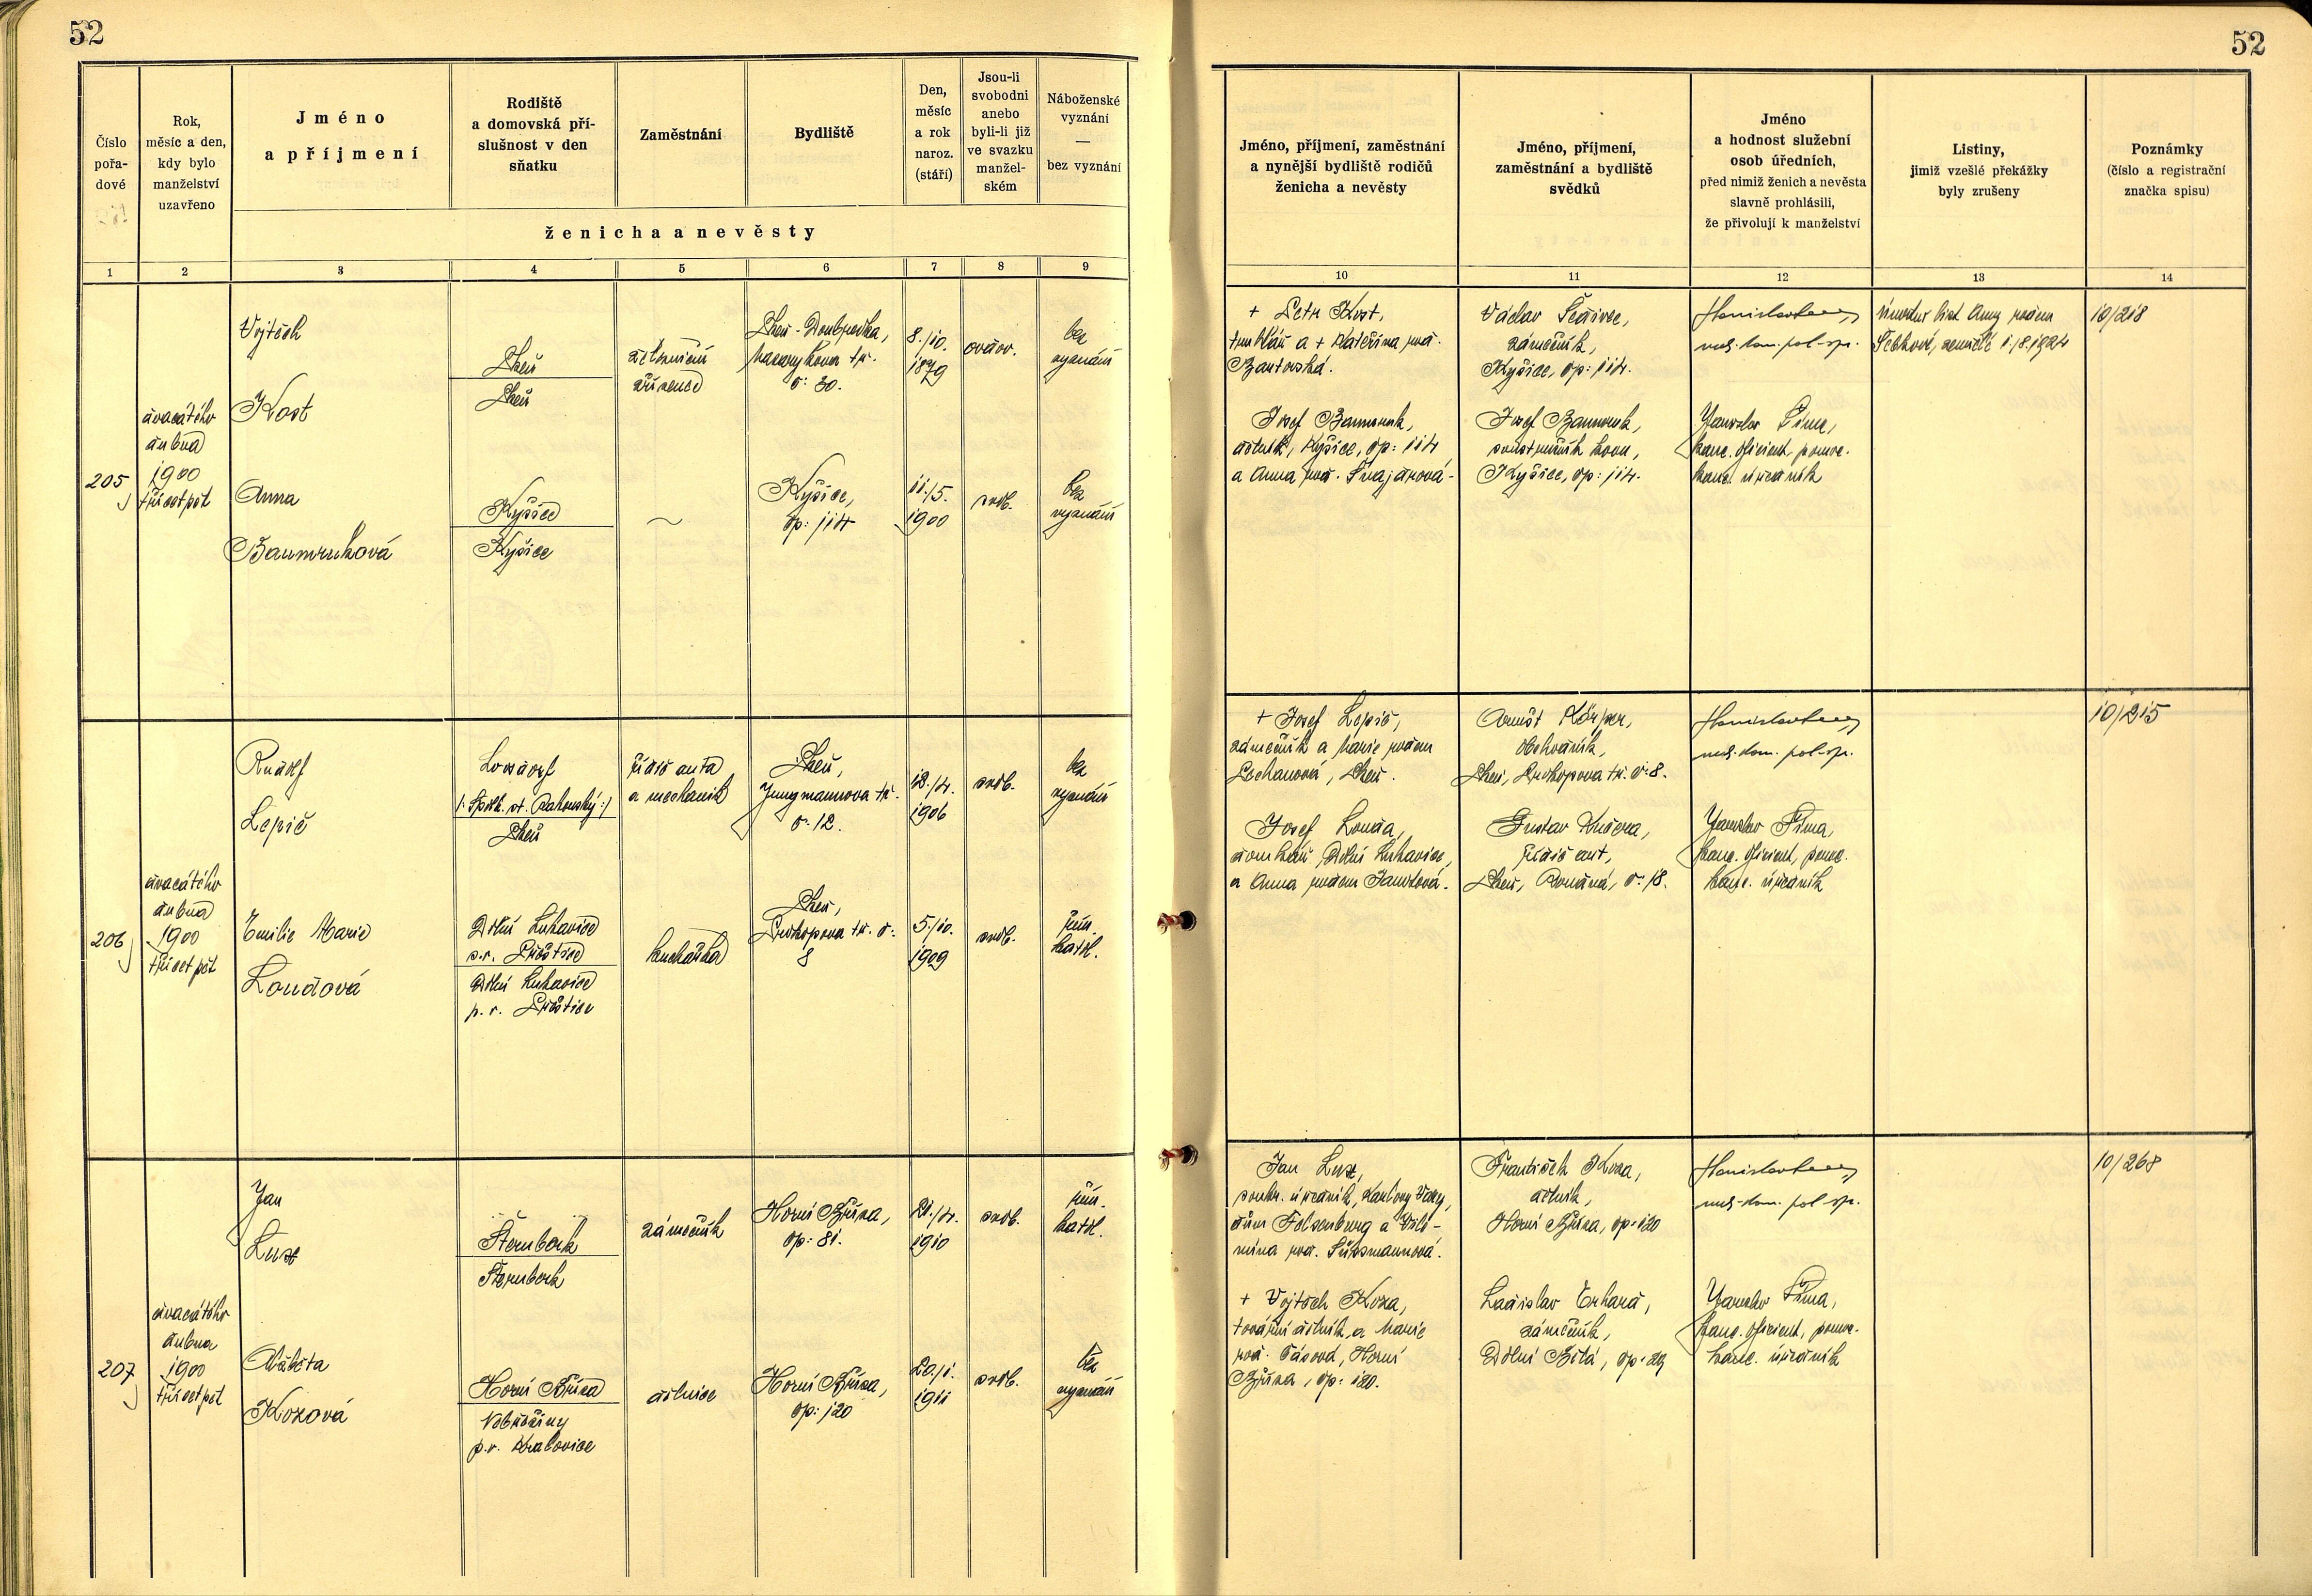 52
52
Číslo
pořa-
dové
Rok,
měsíc a den,
kdy bylo
manželství
uzavřeno
Jméno
a příjmení
Rodiště
a domovská pří-
slušnost v den
sňatku
Zaměstnání
Bydliště
Den,
měsíc
a rok
naroz.
(stáří)
Jsou-li
svobodni
anebo
byli-li již
ve svazku
manžel-
ském
Náboženské
vyznání
—
bez vyznání
ženicha a nevěsty
1 2 3 4 5 6 7 8 9
Jméno, příjmení, zaměstnání
a nynější bydliště rodičů
ženicha a nevěsty
Jméno, příjmení,
zaměstnání a bydliště
svědků
Jméno
a hodnost služební
osob úředních,
před nimiž ženich a nevěsta
slavně prohlásili,
že přivolují k manželství
Listiny,
jimiž vzešlé překážky
byly zrušeny
Poznámky
(číslo a registrační
značka spisu)
10 11 12 13 14
205
dvacátého
dubna
1900
třicetpět
Vojtěch
Kost
Plzeň
Plzeň
železniční
zřízenec
Plzeň-Doubravka,
Masarykova tř.
č: 30.
8./10.
1879
ovdov.
bez
vyznání
Anna
Baumruková
Kyšice
Kyšice
Kyšice,
čp: 114
11./5.
1900
svob.
bez
vyznání
+ Petr Kost,
truhlář a + Kateřina roz.
Žantovská.
Josef Baumruk,
dělník, Kyšice, čp: 114
a Anna roz. Švajdrová.
Václav
zámečník,
Kyšice, čp: 114.
Josef Baumruk,
Kyšice, čp: 114.
měs. kom. pol. spr.
Jaroslav Šíma,
kanc. oficiant, pomoc.
kanc. úředník
úmrtní list Anny rozen
zemřelé 1./8. 1924
10/218
206
dvacátého
dubna
1900
třicet pět
Rudolf
Lepič
Losdorf
Plzeň
řidič auta
a mechanik
Plzeň,
Jungmannova tř.
č. 12.
12./4.
1906
svob.
bez
vyznání
Emilie Marie
Loudová
Dolní Lukavice
p.r. Přeštice
Dolní Lukavice
p.r. Přeštice
kuchařka
Plzeň,
Prokopova tř. č:
8
5./10.
1909
svob.
řím.
katol.
+ Josef Lepič,
zámečník a Marie rozen
Pechanová, Plzeň.
Josef Louda,
domkář Dolní Lukavice,
a Anna rozen
Arnošt Körper,
obchodník,
Plzeň, Prokopova tř. č: 8.
Gustav Kučera,
řidič aut,
Plzeň, č: 18.
měs. kom. pol. spr.
Jaroslav Šíma,
kanc. oficiant, pomoc.
kanc. úředník
10/215
207
dvacátého
dubna
1900
třicetpět
Jan
Lux
Šternberk
Šternberk
zámečník
Horní Bříza,
čp: 81.
21./4.
1910
svob.
řím.
katol.
Alžběta
Kozová
Horní Bříza
Nebřeziny
p.r. Kralovice
dělnice
Horní Bříza,
čp: 120
20./1.
1911
svob.
bez
vyznání
Jan Lux,
soukr. úředník, Karlovy Vary,
dům Felsenburg a Vilé-
mína roz. Süssmannová.
+ Vojtěch Koza,
tovární dělník, a Marie
roz. Horní
Bříza, čp: 120.
František Koza,
dělník,
Horní Bříza, čp: 120
Ladislav Erhard,
zámečník,
Dolní Bělá, čp: 29
měs. kom. pol. spr.
Jaroslav Šíma,
kanc. oficiant, pomoc.
kanc. úředník
10/268